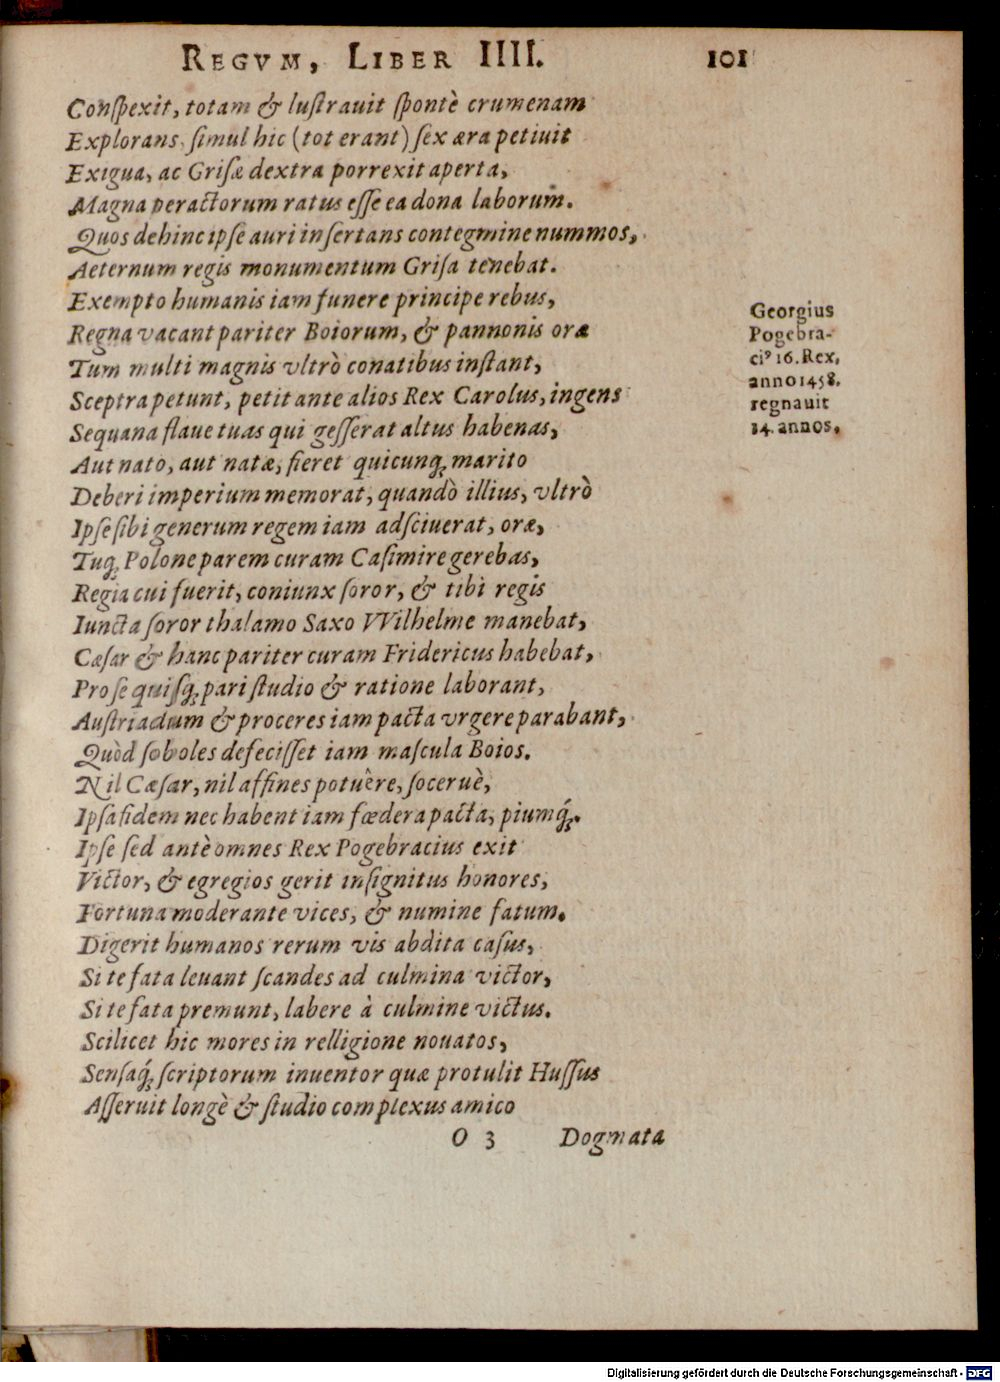 REGVM, LIBER IIII. 101
Conſpexit, totam & luſtrauit ſpontè crumenam
Explorans, ſimul hic (tot erant) ſex æra petiuit
Exigua, ac Griſæ dextra porrexit aperta,
Magna peractorum ratus eſſe ea dona laborum.
Quos dehinc ipſe auri inſertans contegmine nummos,
Aeternum regis monumentum Griſa tenebat.
Exempto humanis iam funere principe rebus,
Regna vacant pariter Boiorum, & pannonis oræ
Tum multi magnis vltrò conatibus inſtant,
Sceptra petunt, petit ante alios Rex Carolus, ingens
Sequana flaue tuas qui geſſerat altus habenas,
Aut nato, aut natæ, fieret quicunq́; marito
Deberi imperium memorat, quandò illius, vltrò
Ipſe ſibi generum regem iam adſciuerat, oræ,
Tuq́; Polone parem curam Caſimire gerebas,
Regia cui fuerit, coniunx ſoror, & tibi regis
Iuncta ſoror thalamo Saxo VVilhelme manebat,
Cæſar & hanc pariter curam Fridericus habebat,
Pro ſe quiſq́; pari ſtudio & ratione laborant,
Auſtriadum & proceres iam pacta vrgere parabant,
Quòd ſoboles defeciſſet iam maſcula Boios.
Nil Cæſar, nil affines potuêre, ſoceruè,
Ipſa fidem nec habent iam fœdera pacta, piumq́;.
Ipſe ſed antè omnes Rex Pogebracius exit
Victor, & egregios gerit inſignitus honores,
Fortuna moderante vices, & numine fatum.
Digerit humanos rerum vis abdita caſus,
Si te fata leuant ſcandes ad culmina victor,
Si te fata premunt, labere à culmine victus.
Scilicet hic mores in relligione nouatos,
Senſaq́; ſcriptorum inuentor quæ protulit Huſſus
Aſſeruit longè & ſtudio complexus amico
O 3 Dogmata
Georgius
Pogebra-
ciꝰ 16. Rex,
anno 1458.
regnauit
14. annos.
Digitalisierung gefördert durch die Deutsche Forschungsgemeinschaft - DFG